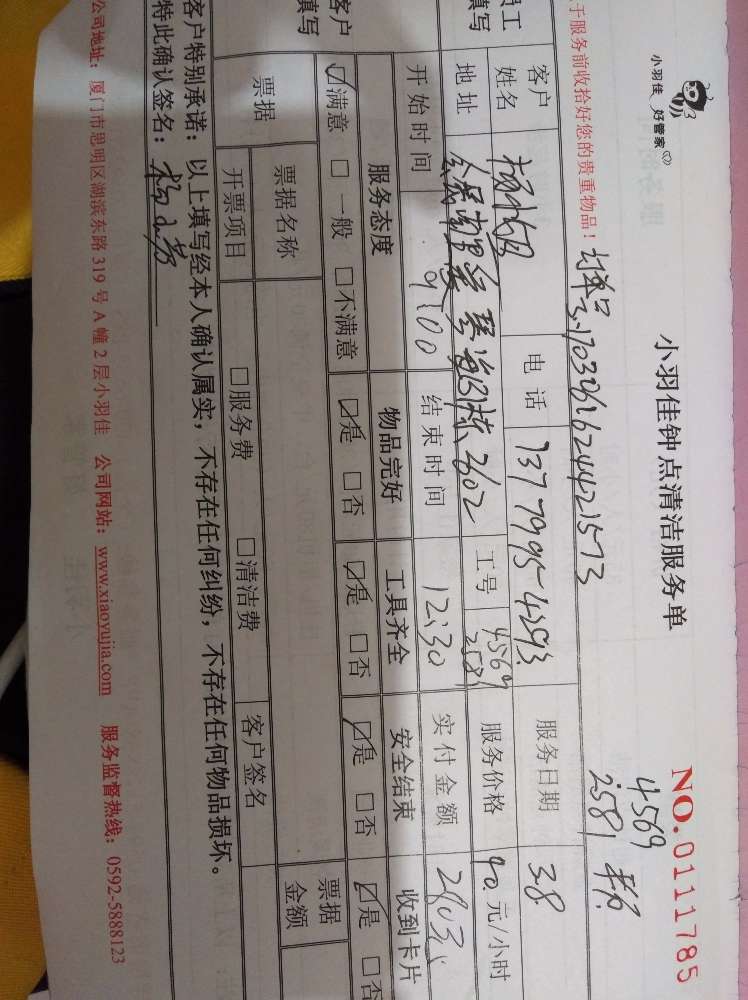 小羽佳 好管家
小羽佳钟点清洁服务单
NO.0111785
4569
2581
于服务前收拾好您的贵重物品!
订单号
员工
填写
客户
姓名
电话
137 7995 4293
服务日期
3.8
地址
3602
工号
4569
2581
服务价格
40 元/小时
开始时间
9:00
结束时间
12:30
实付金额
280元
客户
填写
服务态度
物品完好
工具齐全
安全结束
收到卡片
☑满意 □一般 □不满意
☑是 □否
☑是 □否
☑是 □否
☑是 □否
票据
票据名称
票据
金额
开票项目
□服务费 □清洁费
客户签名
客户特别承诺:以上填写经本人确认属实,不存在任何纠纷,不存在任何物品损坏。
特此确认签名:
公司地址:厦门市思明区湖滨东路 319 号 A 幢 2 层小羽佳 公司网站:www.xiaoyujia.com 服务监督热线:0592-5888123